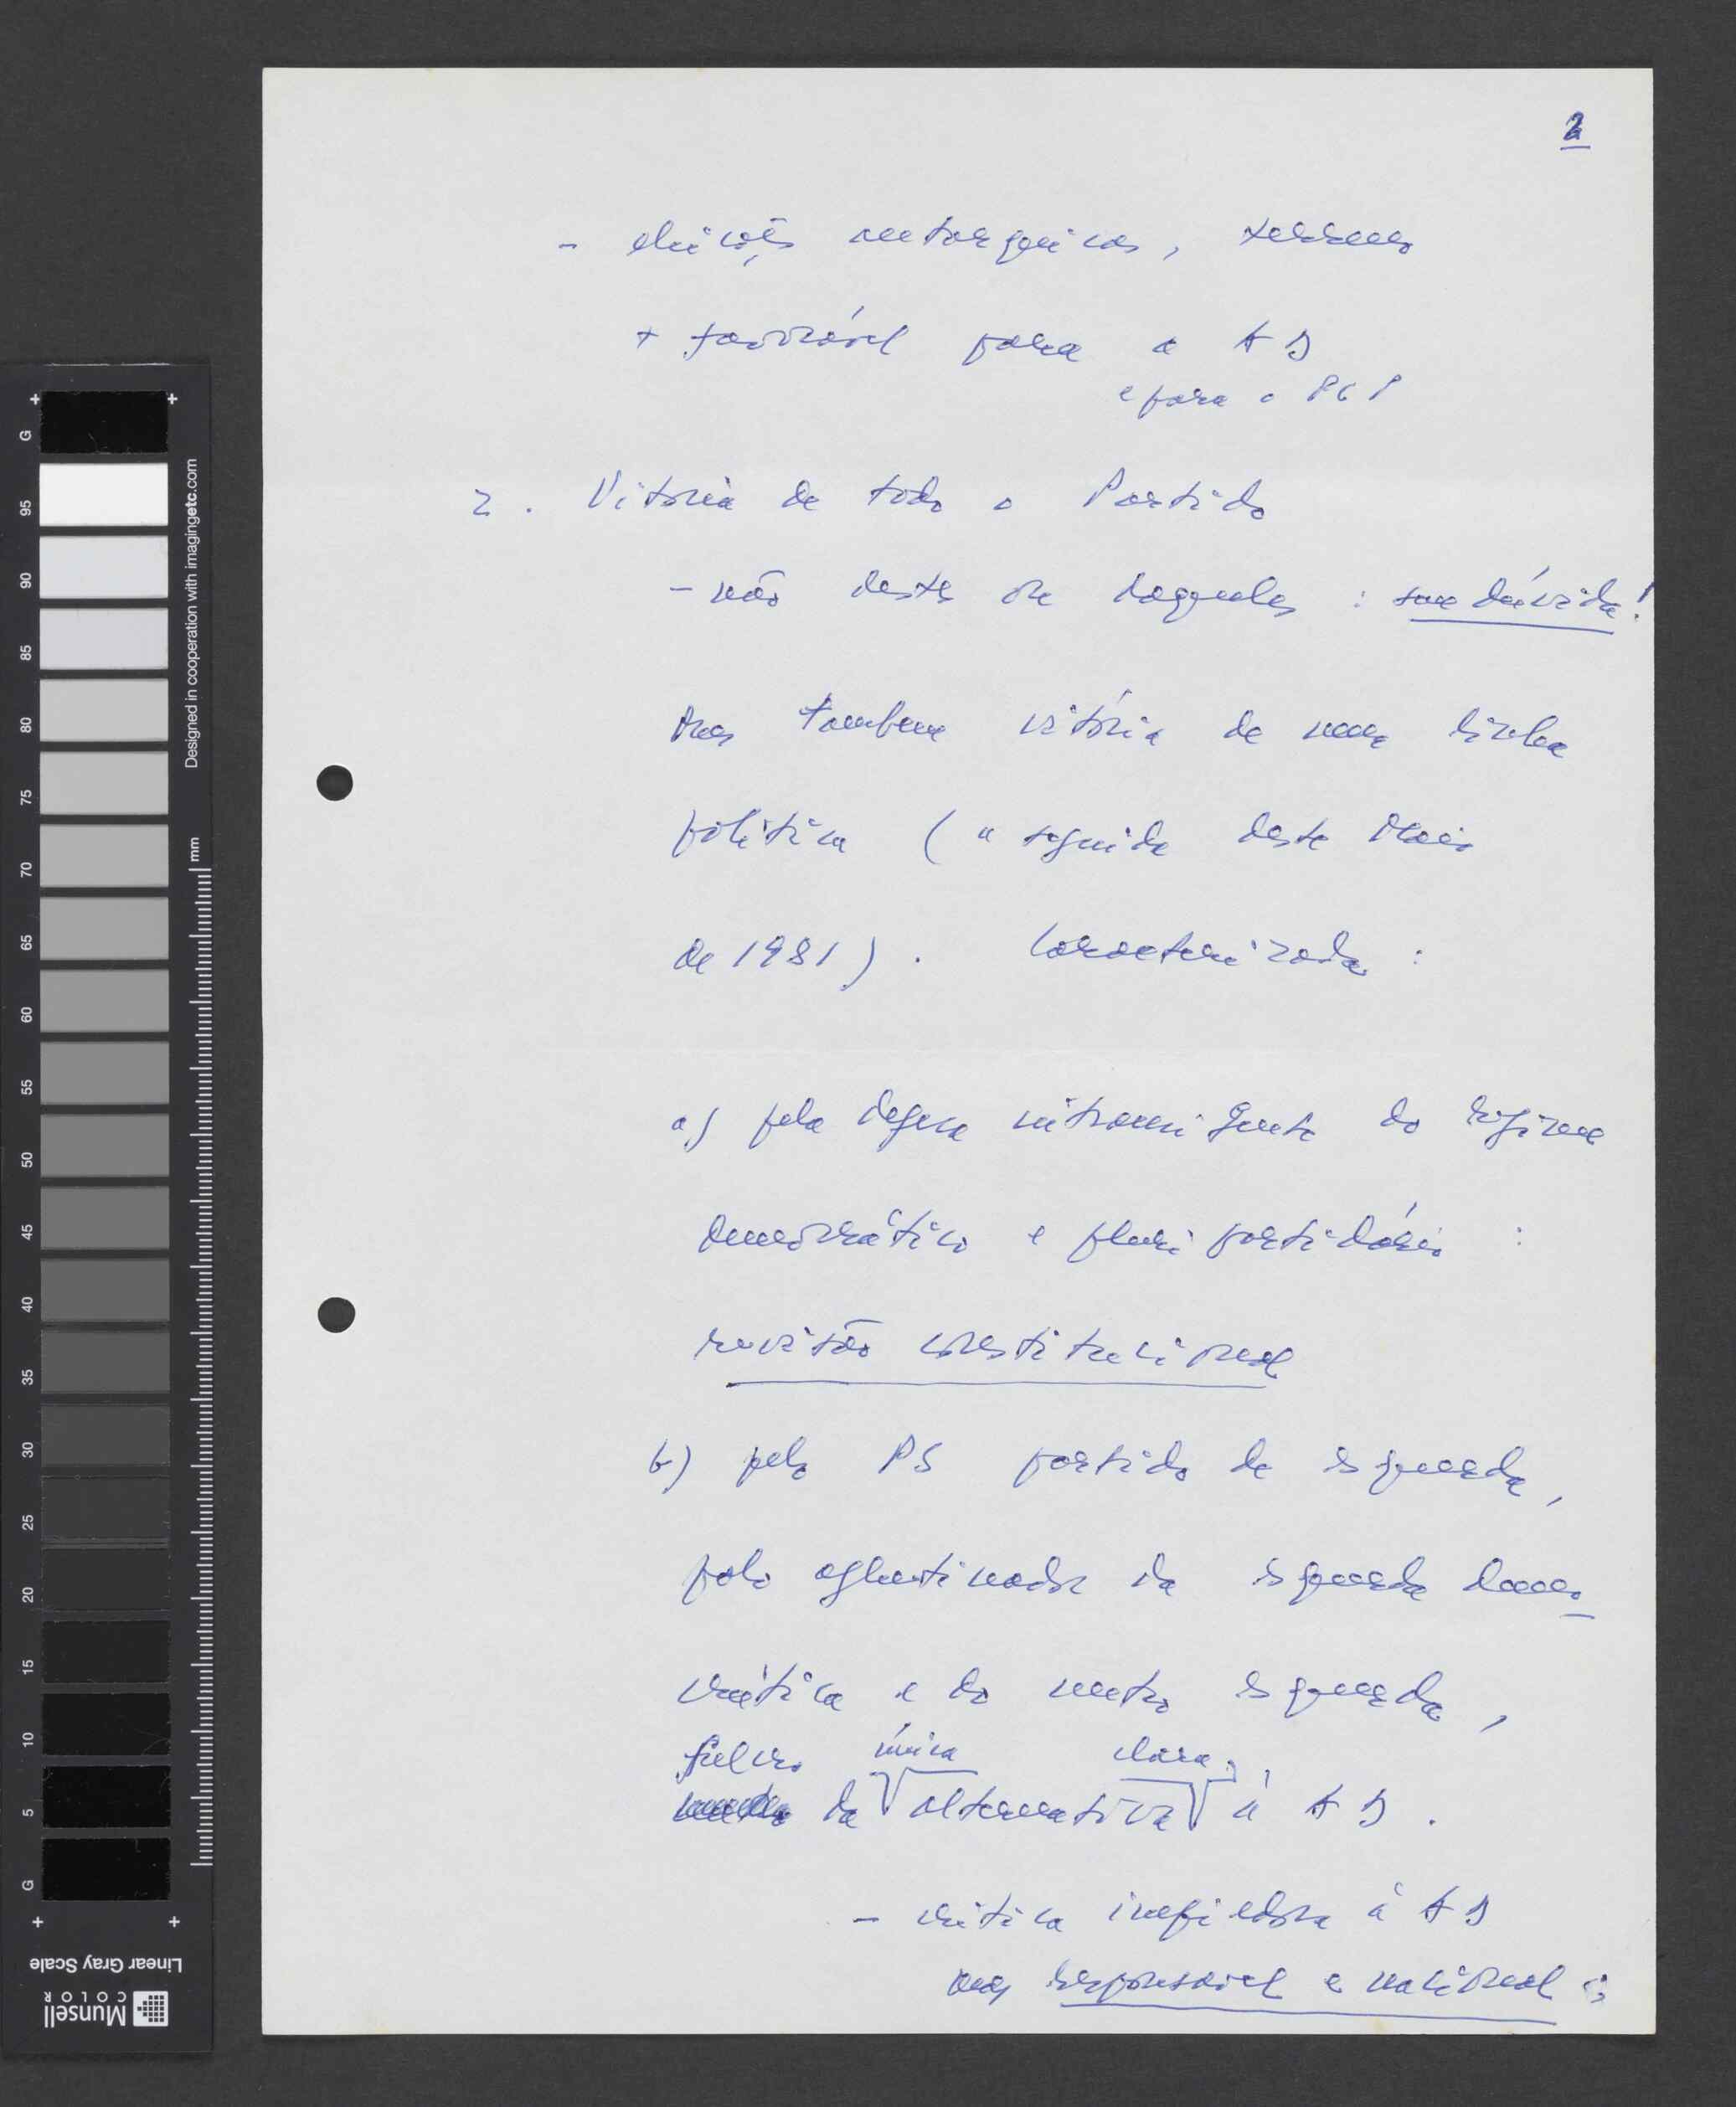 2
- eleições autárquicas, terreno
+ favorável para a AD
e para o PCP
2. Vitória de todo o Partido
- não destes ou daqueles : sem dúvida!
Mas tambem vitória de uma linha
politica (a seguida desde Maio
de 1981). Caracterizada :
a) pela defesa intransigente do regime
democrático e pluripartidário :
revisão constitucional
b) pelo PS partido de esquerda,
polo aglutinador da esquerda demo
crática e do centro esquerda,
fulcro única clara,
da alternativa à AD.
- critica impiedosa à AD
mas responsavel e nacional :
Designed in cooperation with imagingetc.com
mm
G 95 90 85 80 75 70 65 60 55 50 45 40 35 30 25 20 15 10 5 G
Linear Gray Scale
Munsell
COLOR